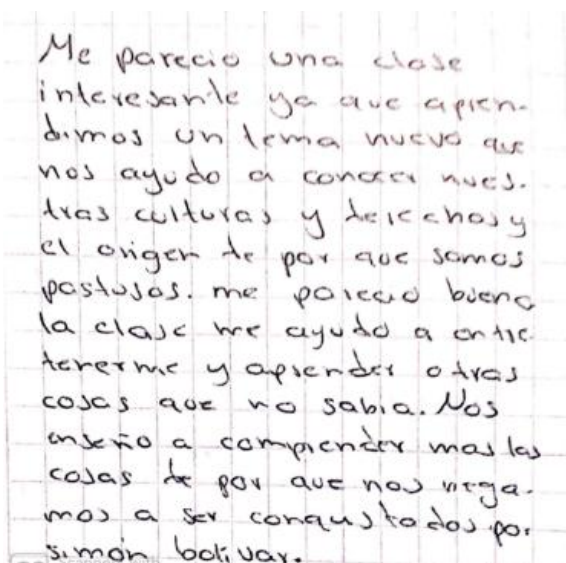 Me parecio una clase
interesante ya que apren-
dimos un tema nuevo que
nos ayudo a conocer nues-
tras culturas y derechos y
el origen de por que somos
pastusos. me parecio buena
la clase me ayudo a entre
tenerme y aprender otras
cosas que no sabia. Nos
enseño a comprender mas las
cosas de por que nos nega-
mos a ser conquistados por
simón bolivar.